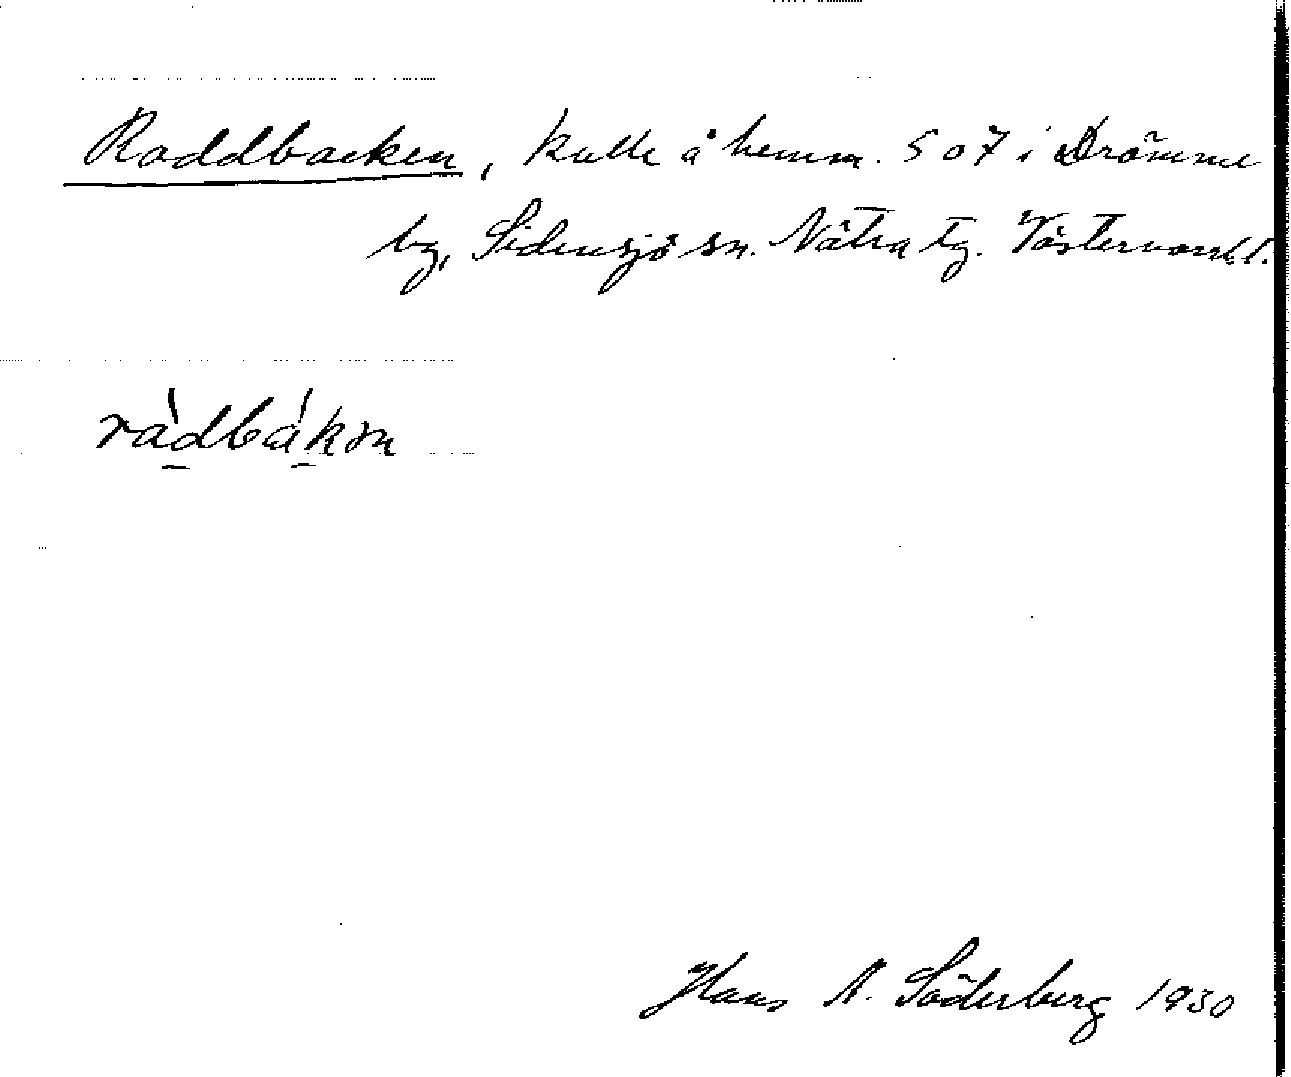 Raddbacken, kulle å hemm. 507 i Drömme
by, Sidensjö sn. Nätra tg. Västernorrl. l.
ràdbákən
Hans A. Söderberg 1930